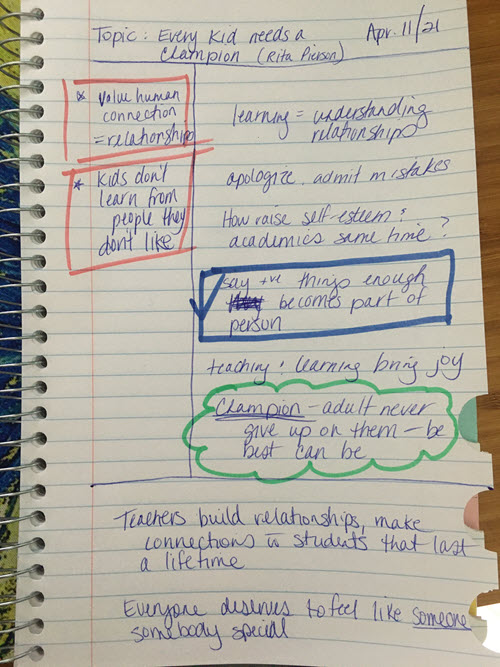 Topic: Every Kid needs a
Champion (Rita Pierson)
Apr. 11/21
* value human
connection
= relationships
* Kids don't
learn from
people they
don't like
learning = understanding
relationships
apologize, admit mistakes
How raise self-esteem &
academics same time?
say +ve things enough
becomes part of
person
teaching & learning bring joy
Champion - adult never
give up on them - be
best can be
Teachers build relationships, make
connections w students that last
a lifetime
Everyone deserves to feel like someone
somebody special